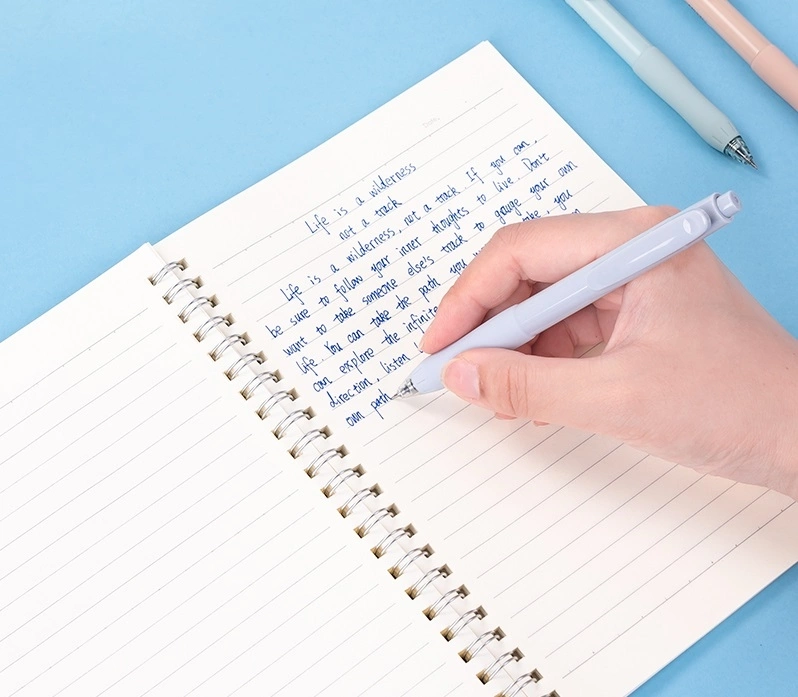 Life is a wilderness
not a track
Life is a wilderness, not a track. If you can,
be sure to follow your inner thoughts to live. Don't
want to take someone else's track to gauge your own
life. You can take the path you take, you
can explore the infinite
direction, listen
own path